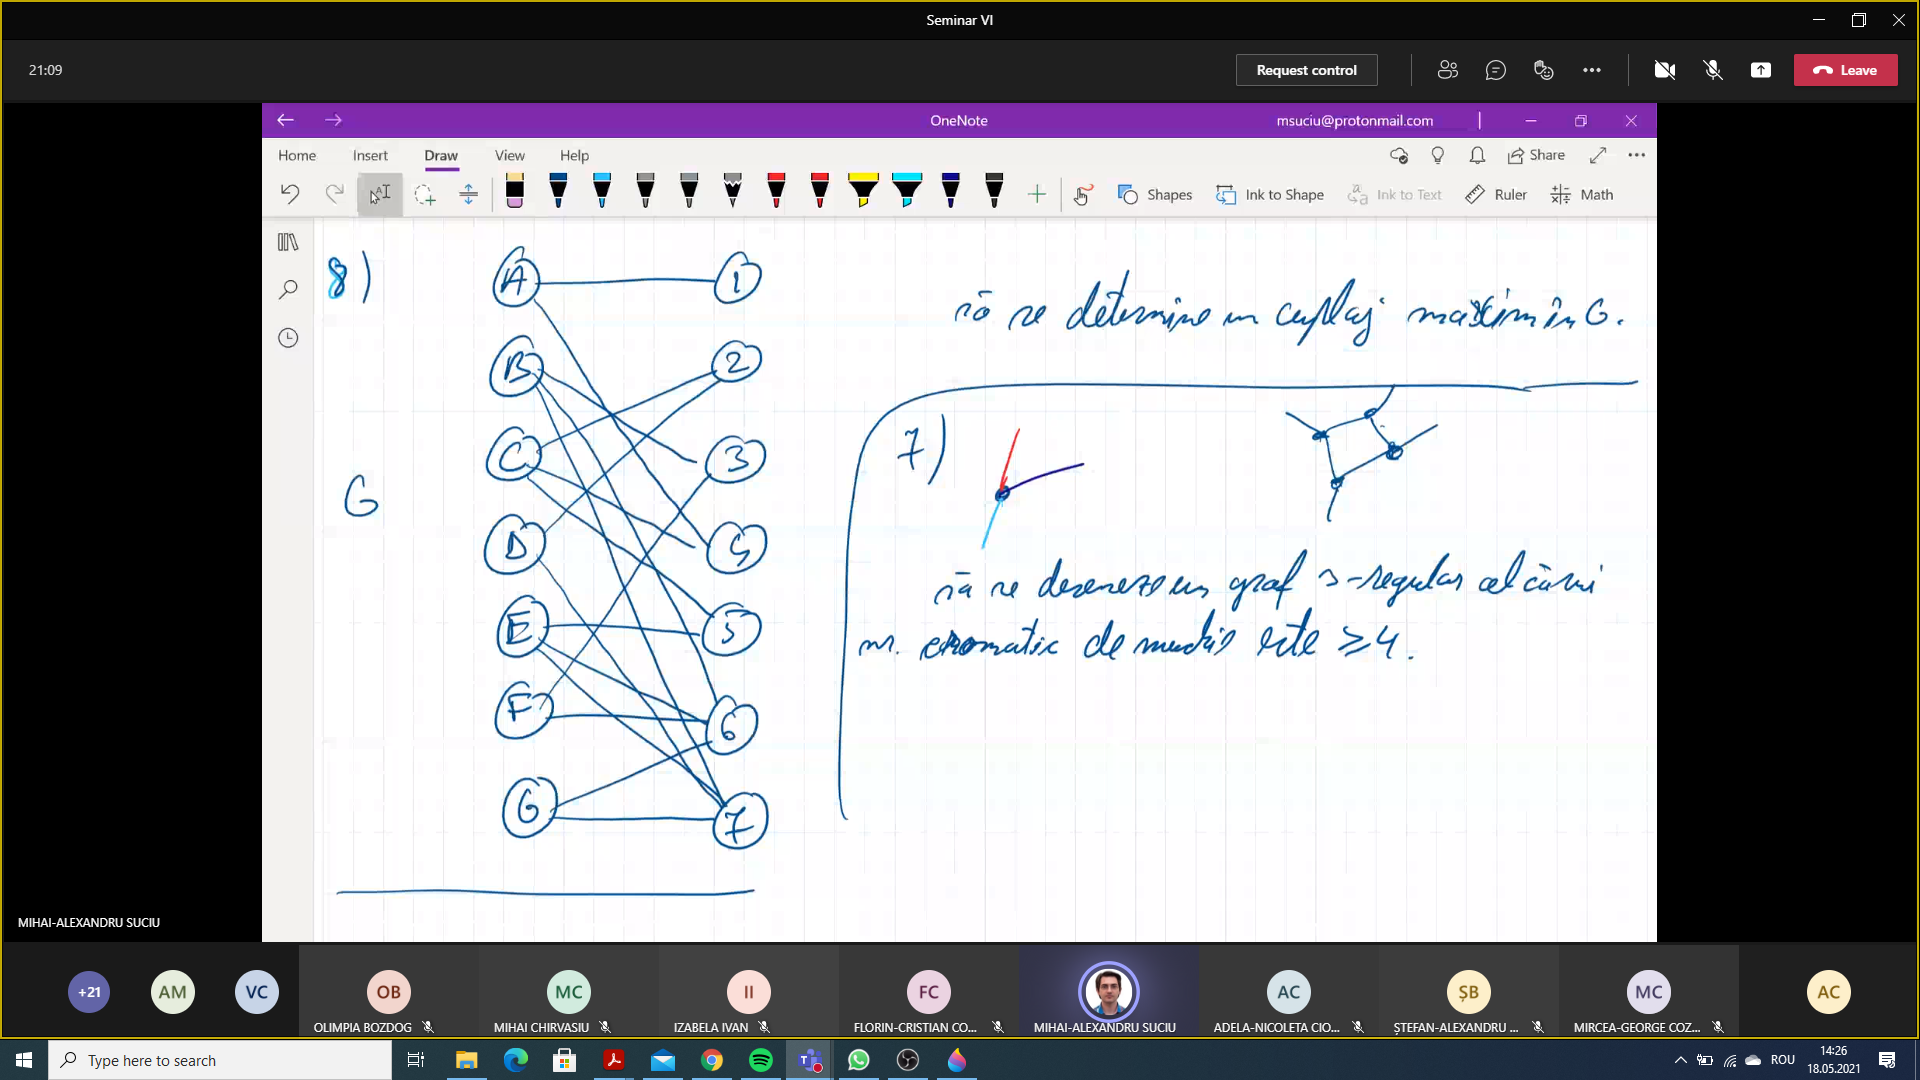 Seminar VI
21:09
Request control
Leave
OneNote
msuciu@protonmail.com
Home Insert Draw View Help
Share
Shapes Ink to Shape Ink to Text Ruler Math
8)
A 1
B 2
C 3
D 4
E 5
F 6
G 7
G
să se determine un cuplaj maxim în G.
7)
să se deseneze un graf 3-regular al cărui
nr. cromatic de muchie este ≥4.
MIHAI-ALEXANDRU SUCIU
+21 AM VC OB MC II FC AC ȘB MC AC
OLIMPIA BOZDOG MIHAI CHIRVASIU IZABELA IVAN FLORIN-CRISTIAN CO... MIHAI-ALEXANDRU SUCIU ADELA-NICOLETA CIO... ȘTEFAN-ALEXANDRU ... MIRCEA-GEORGE COZ...
Type here to search
ROU
14:26
18.05.2021